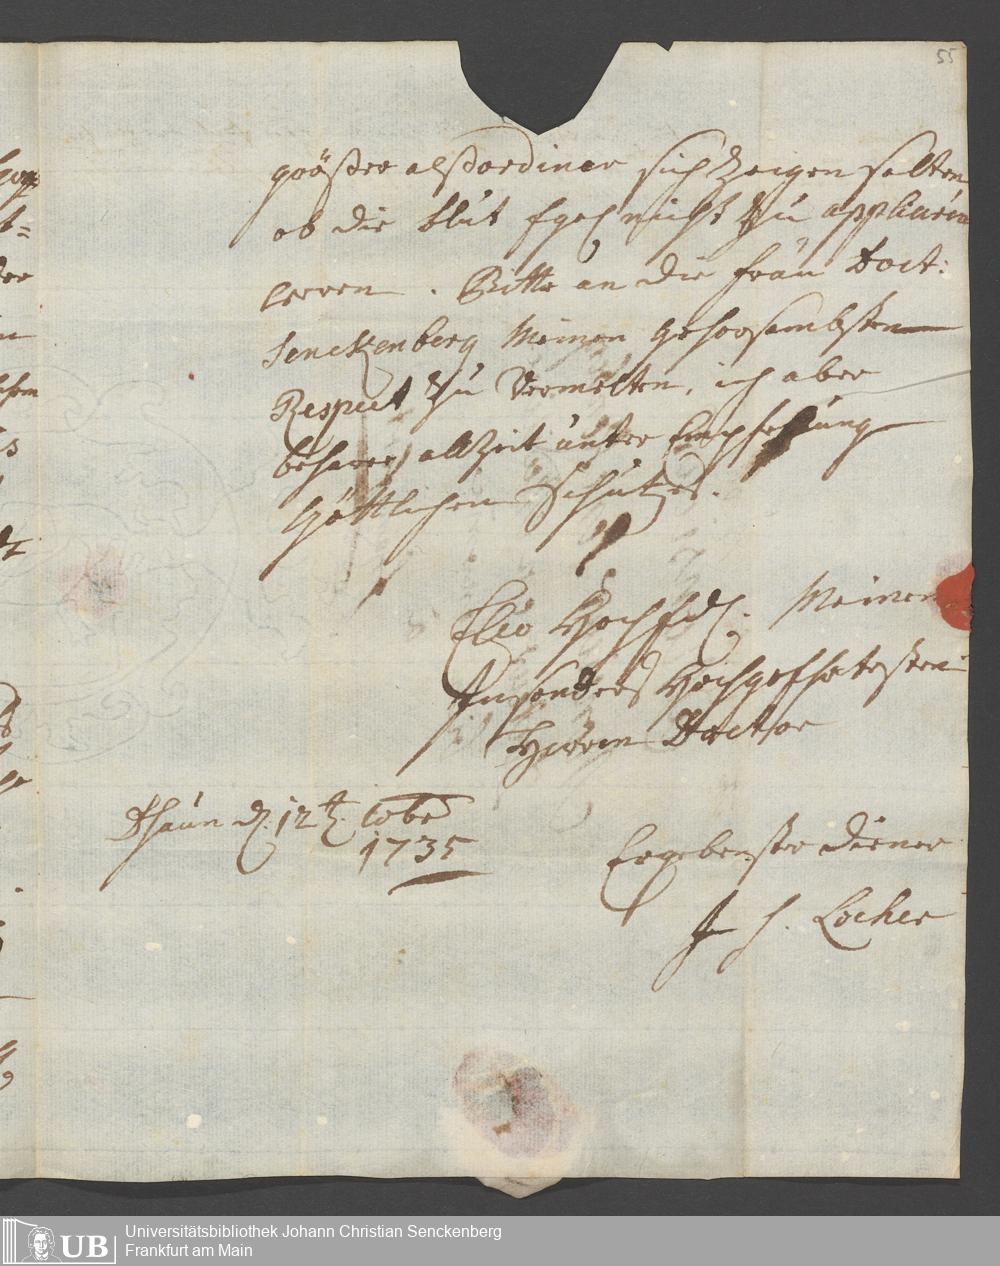 55
größer als ordiner sich Zeigen solten
ob die blut Egel nicht zu appliciren
weren. Bitte an die frau Doct:
Senckenberg Meinen gehorsambsten
Respect zu Vermelten, ich aber
beharre allzeit unter Empfehlung
Göttlichen Schutzes.
Meinen
Insonders Hochgeschätzten
Herren Doctor
Dhaun d. 12t. 8be
1735
Ergebenster diener
J H. Locher
UB
Universitätsbibliothek Johann Christian Senckenberg
Frankfurt am Main